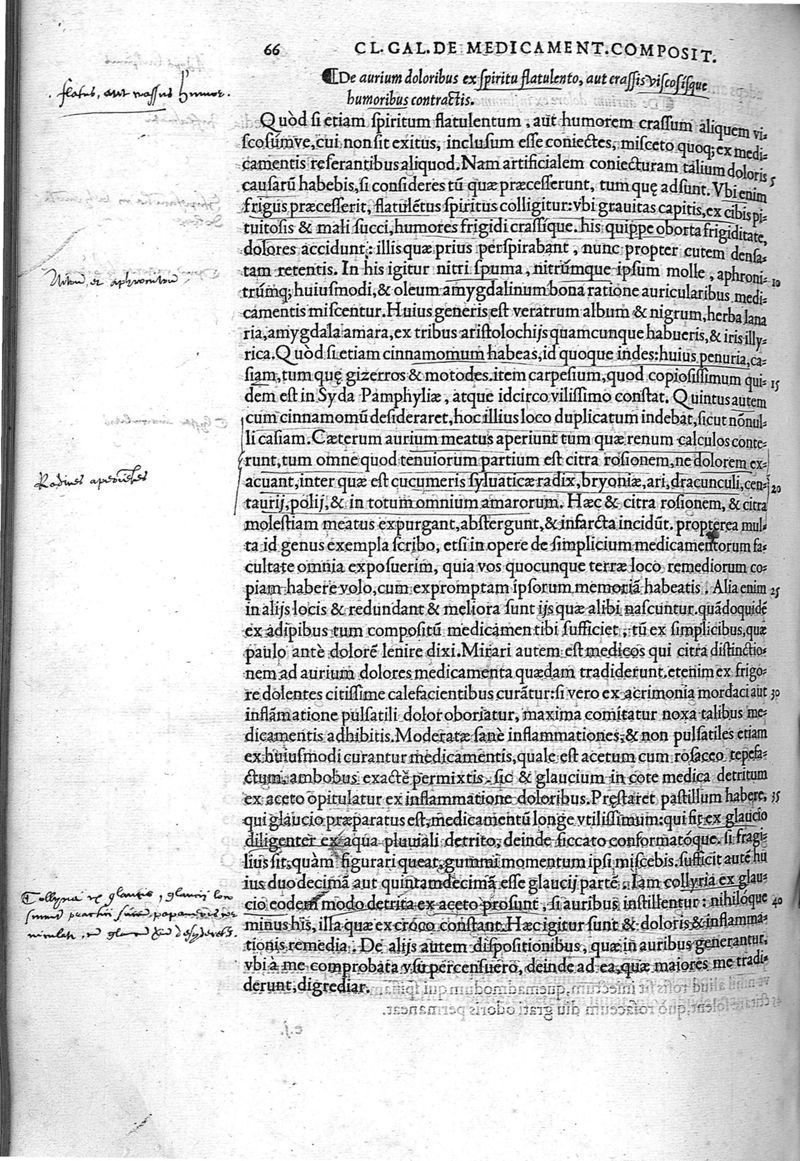 66 CL. GAL. DE MEDICAMENT. COMPOSIT.
¶De aurium doloribus ex spiritu flatulento, aut crassis viscosisque
humoribus contractis.
flatus, aut crassus humor.
Quòd si etiam spiritum flatulentum, aut humorem crassum aliquem vi-
scosúmve, cui non sit exitus, inclusum esse coniectes, misceto quoq; ex medi-
camentis referantibus aliquod. Nam artificialem coniecturam talium doloris
causarũ habebis, si consideres tũ quæ præcesserunt, tum quę adsunt. Vbi enim 5
frigus præcesserit, flatulẽtus spiritus colligitur: vbi grauitas capitis, ex cibis pi-
tuitosis & mali succi, humores frigidi crassique. his quippe oborta frigiditate,
dolores accidunt: illis quæ prius perspirabant, nunc propter cutem densa-
tam retentis. In his igitur nitri spuma, nitrúmque ipsum molle, aphroni- 10
trúmq; huiusmodi, & oleum amygdalinum bona ratione auricularibus medi-
camentis miscentur. Huius generis est veratrum album & nigrum, herba lana
ria, amygdala amara, ex tribus aristolochijs quamcunque habueris, & iris illy-
rica. Quòd si etiam cinnamomum habeas, id quoque indes: huius penuria, ca-
siam, tum quę gizerros & motodes. item carpesium, quod copiosissimum qui- 15
dem est in Syda Pamphyliæ, atque idcirco vilissimo constat. Quintus autem
cum cinnamomũ desideraret, hoc illius loco duplicatum indebat, sicut nõnul-
li casiam. Cæterum aurium meatus aperiunt tum quæ renum calculos conte-
runt, tum omne quod tenuiorum partium est citra rosionem, ne dolorem ex-
acuant, inter quæ est cucumeris syluaticæ radix, bryoniæ, ari, dracunculi, cen- 20
taurij, polij, & in totum omnium amarorum. Hæc & citra rosionem, & citra
molestiam meatus expurgant, abstergunt, & infarcta incidũt. propterea mul-
ta id genus exempla scribo, etsi in opere de simplicium medicamentorum fa-
cultate omnia exposuerim, quia vos quocunque terræ loco remediorum co-
piam habere volo, cum expromptam ipsorum memoriã habeatis. Alia enim 25
in alijs locis & redundant & meliora sunt ijs quæ alibi nascuntur. quãdoquidẽ
ex adipibus tum compositũ medicamen tibi sufficiet, tũ ex simplicibus, quæ
paulo antè dolorẽ lenire dixi. Mirari autem est medicos qui citra distinctio-
nem ad aurium dolores medicamenta quædam tradiderunt. etenim ex frigo-
re dolentes citissime calefacientibus curãtur: si vero ex acrimonia mordaci aut 30
inflãmatione pulsatili dolor oboriatur, maxima comitatur noxa talibus me-
dicamentis adhibitis. Moderatæ sanè inflammationes, & non pulsatiles etiam
ex huiusmodi curantur medicamentis, quale est acetum cum rosaceo tepefa-
ctum, ambobus exactè permixtis. sic & glaucium in cote medica detritum
ex aceto opitulatur ex inflammatione doloribus. Pręstaret pastillum habere, 35
qui glaucio præparatus est, medicamentũ longe vtilissimum: qui sit ex glaucio
diligenter ex aqua pluuiali detrito, deinde siccato conformatóque. si fragi-
lius sit, quàm figurari queat, gummi momentum ipsi miscebis. sufficit autẽ hu
ius duodecimã aut quintamdecimã esse glaucij partẽ. Iam collyria ex glau-
cio eodem modo detrita ex aceto prosunt, si auribus instillentur: nihilóque 40
minus his, illa quæ ex croco constant. Hæc igitur sunt & doloris & inflamma-
tionis remedia. De alijs autem dispositionibus, quæ in auribus generantur,
vbi à me comprobata vsu percensuero, deinde ad ea, quæ maiores me tradi-
derunt, digrediar.
Nitrũ et aphronitrũ
Radices aperiẽtes
Collyria ex glaucio, glaucij